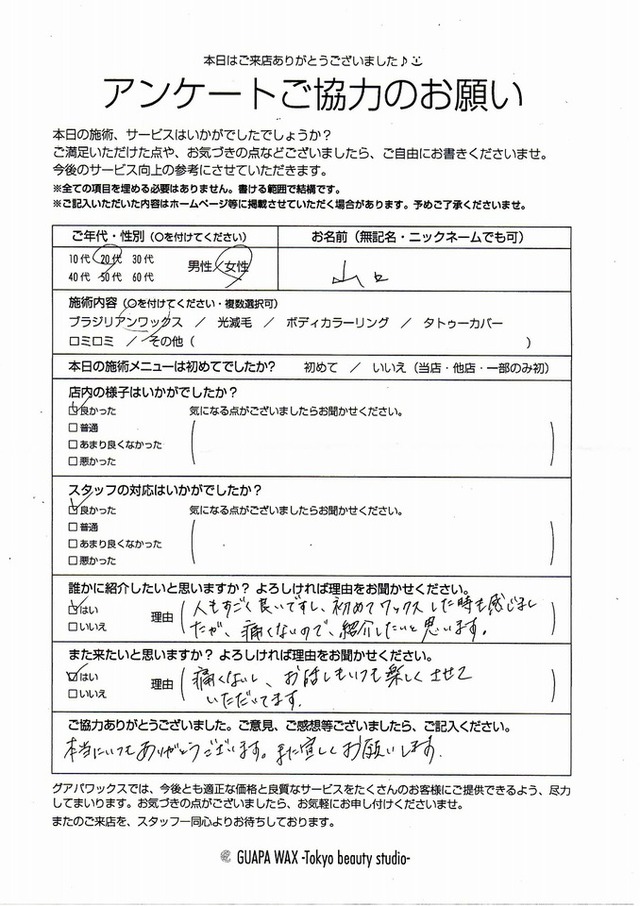 本日はご来店ありがとうございました♪
アンケートご協力のお願い
本日の施術、サービスはいかがでしたでしょうか?
ご満足いただけた点や、お気づきの点などございましたら、ご自由にお書きくださいませ。
今後のサービス向上の参考にさせていただきます。
※全ての項目を埋める必要はありません。書ける範囲で結構です。
※ご記入いただいた内容はホームページ等に掲載させていただく場合があります。予めご了承くださいませ。
ご年代・性別(○を付けてください) お名前(無記名・ニックネームでも可)
10代 20代 30代
40代 50代 60代
男性/女性
山口
施術内容(○を付けてください・複数選択可)
ブラジリアンワックス / 光減毛 / ボディカラーリング / タトゥーカバー
ロミロミ / その他( )
本日の施術メニューは初めてでしたか? 初めて / いいえ(当店・他店・一部のみ初)
店内の様子はいかがでしたか?
☑良かった 気になる点がございましたらお聞かせください。
□普通
□あまり良くなかった
□悪かった
スタッフの対応はいかがでしたか?
☑良かった 気になる点がございましたらお聞かせください。
□普通
□あまり良くなかった
□悪かった
誰かに紹介したいと思いますか? よろしければ理由をお聞かせください。
☑はい
□いいえ
理由
人もすごく良いですし、初めてワックスした時も感じまし
たが、痛くないので、紹介したいと思います。
また来たいと思いますか? よろしければ理由をお聞かせください。
☑はい
□いいえ
理由
痛くないし、お話しもいつも楽しくさせて
いただいてます。
ご協力ありがとうございました。ご意見、ご感想等ございましたら、ご記入ください。
本当にいつもありがとうございます。また宜しくお願いします。
グアパワックスでは、今後とも適正な価格と良質なサービスをたくさんのお客様にご提供できるよう、尽力
してまいります。お気づきの点がございましたら、お気軽にお申し付けくださいませ。
またのご来店を、スタッフ一同心よりお待ちしております。
GUAPA WAX -Tokyo beauty studio-